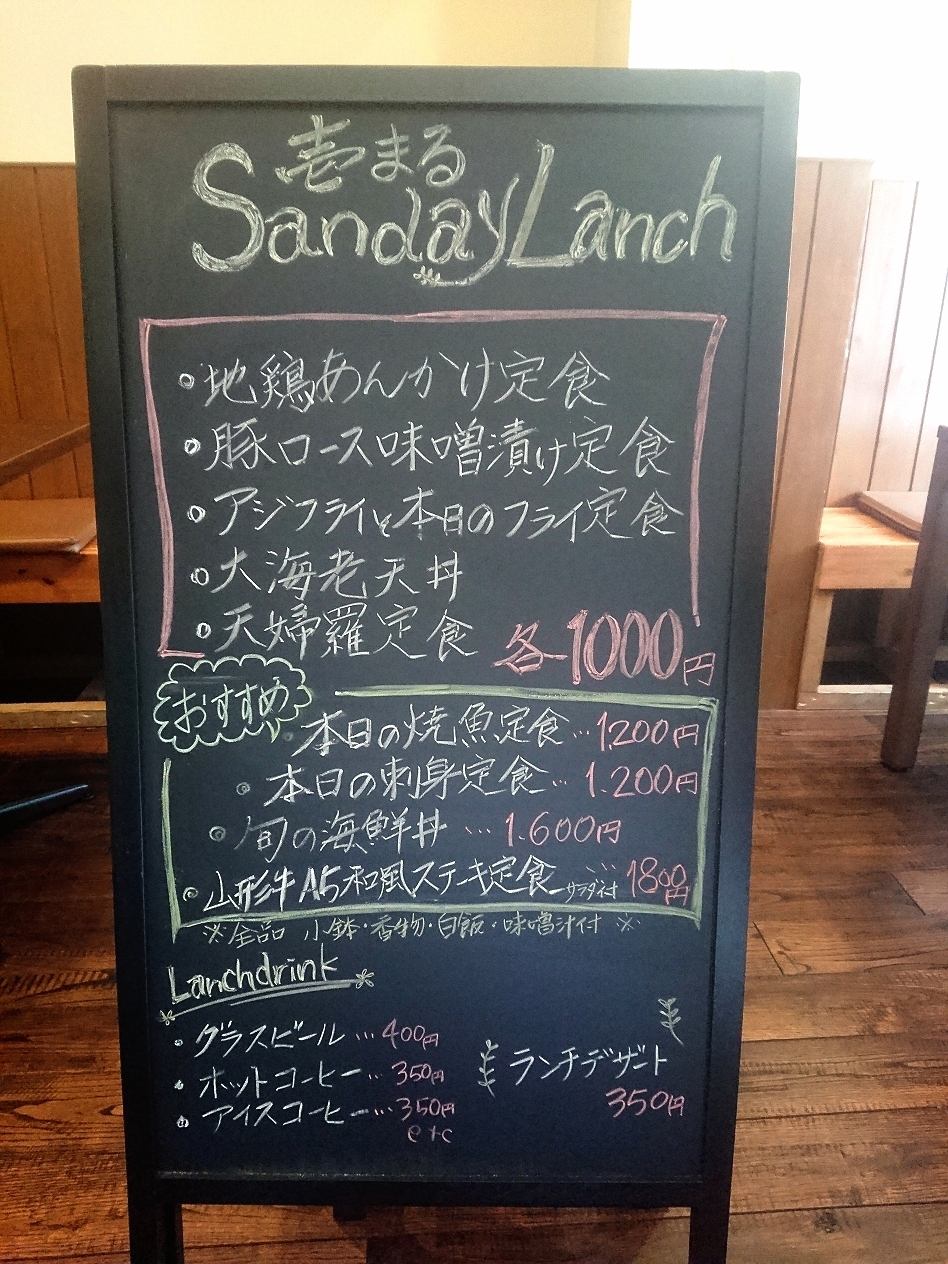 壱まる
Sanday Lanch
地鶏あんかけ定食
豚ロース味噌漬け定食
アジフライと本日のフライ定食
大海老天丼
天婦羅定食 各1000円
おすすめ
本日の焼魚定食…1,200円
本日の刺身定食…1.200円
旬の海鮮丼…1.600円
山形牛A5和風ステーキ定食 サラダ付…1800円
※全品 小鉢・香物・白飯・味噌汁付※
Lanchdrink
グラスビール…400円
ホットコーヒー…350円
アイスコーヒー…350円
etc
ランチデザート
350円